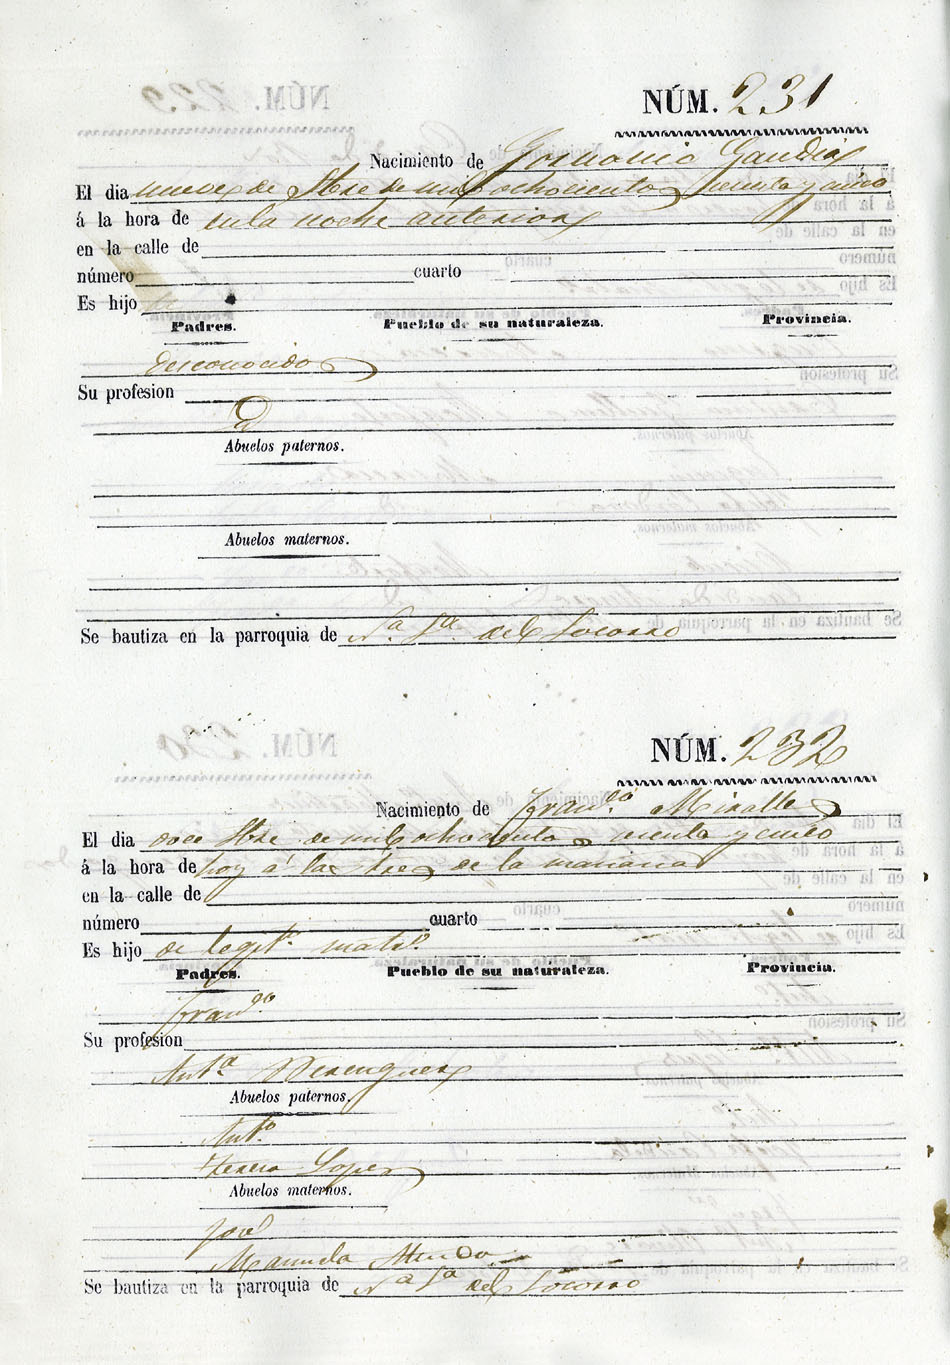 NÚM. 231
Nacimiento de Gaudia
El dia nueve de Stbre de mil ochocientos sesenta y cinco
á la hora de en la noche anterior
en la calle de
número cuarto
Es hijo
Padres. Pueblo de su naturaleza. Provincia.
desconocidos
Su profesion
Abuelos paternos.
Abuelos maternos.
Se bautiza en la parroquia de N.ª S.ª del Socorro
NÚM. 232
Nacimiento de Fran.co Miralles
El dia doce Stbre de mil ochocientos sesenta y cinco
á la hora de hoy á las tres de la mañana
en la calle de
número cuarto
Es hijo de legit.º matr.º
Padres. Pueblo de su naturaleza. Provincia.
Fran.co
Su profesion
Ant.ª Berenguer
Abuelos paternos.
Ant.º
Teresa Lopez
Abuelos maternos.
José
Manuela
Se bautiza en la parroquia de N.ª S.ª del Socorro